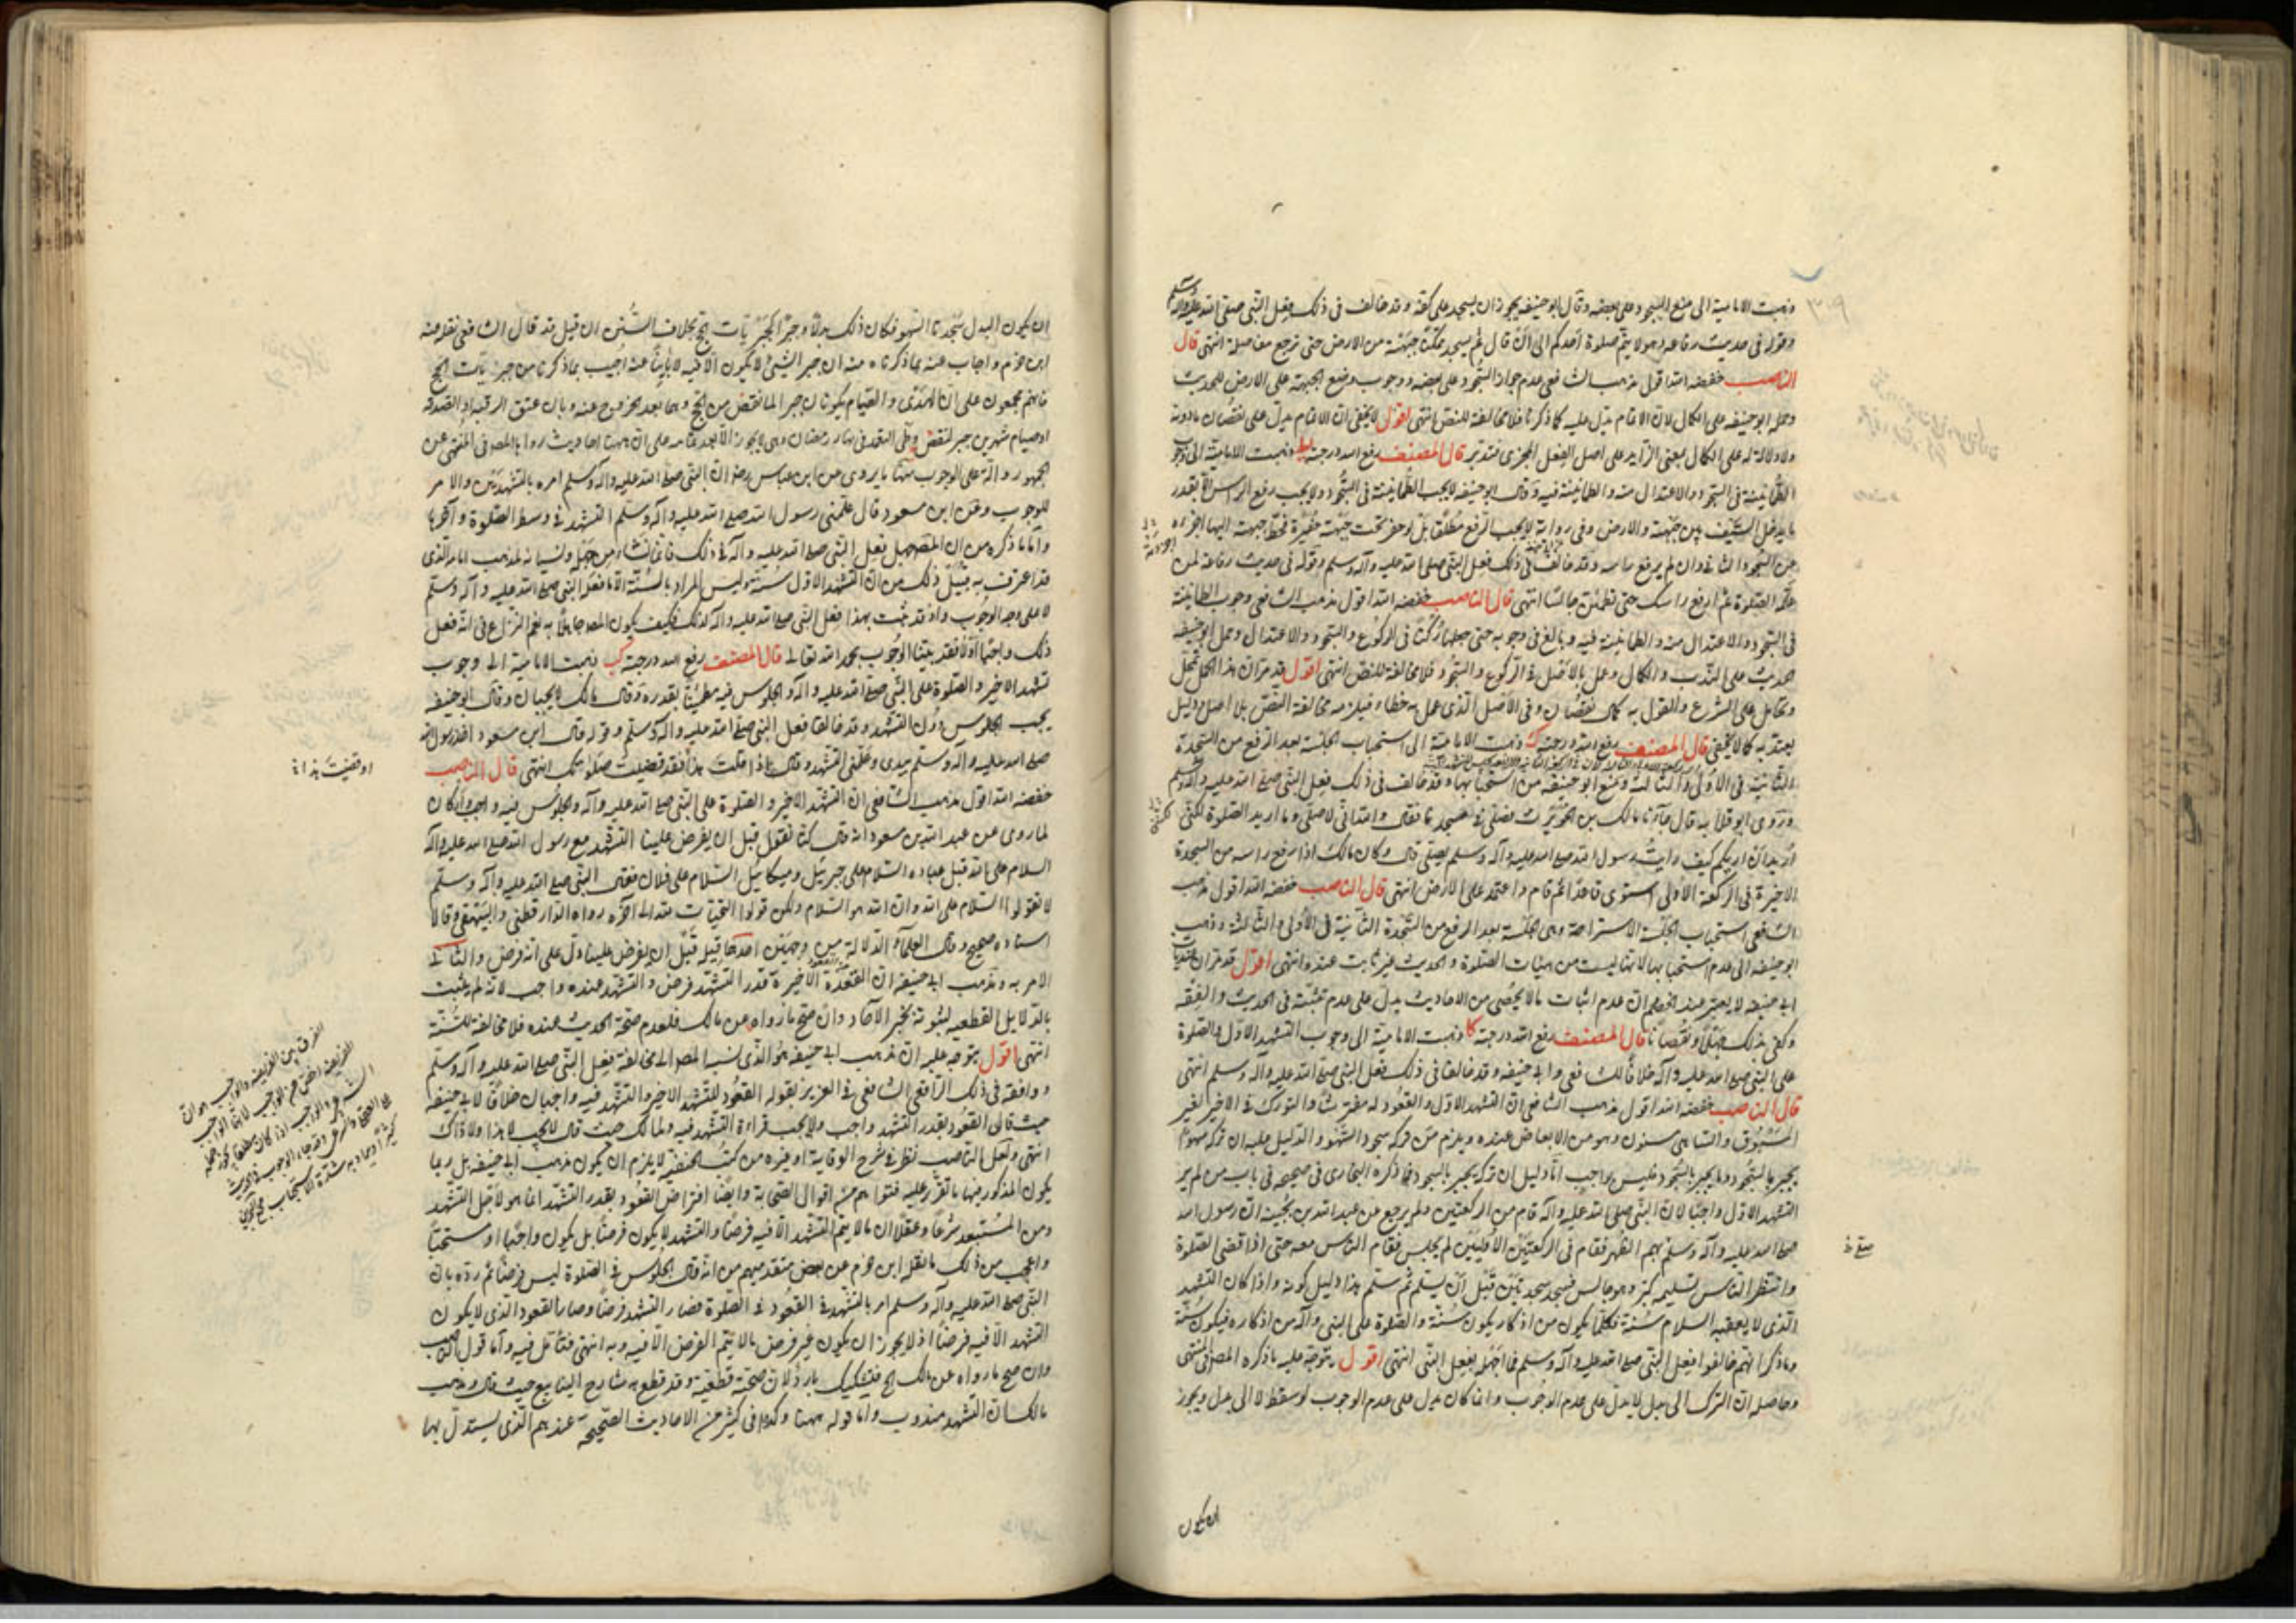 ٣٠٩
وذهبت الامامية الى منع السجود على بعضه وقال ابو حنيفه يجوز ان يسجد على كفه وقد خالف فى ذلك فعل النبى صلى الله عليه وآله وسلم
وقوله فى حديث رفاعه وهو لا يتم صلوة احدكم الى ان قال ثم يسجد ممكنا جبهته من الارض حتى ترجع مفاصله انتهى قال
الناصب خفضه الله اقول مذهب الشافعى عدم جواز السجود على بعضه ووجوب وضع الجبهة على الارض للحديث
وحمله ابو حنيفه على الكمال لان الاتمام يدل عليه كما ذكرنا فلا مخالفة للنص انتهى اقول لا يخفى ان الاتمام يدل على نقصان ما دونه
ولا دلالة له على الكمال بمعنى الزايد على اصل الفعل المجزى فتدبر قال المصنف رفع الله درجته يط ذهبت الامامية الى وجوب
الطمانينة فى السجود والاعتدال منه والطمانينة فيه وقال ابو حنيفه لا يجب الطمانينة فى السجود ولا يجب رفع الراس الا بقدر
ما يدخل السيف بين جبهته والارض وفى رواية لا يجب الرفع مطلقا بل لو حفر تحت جبهته حفيرة فحط جبهته اليها اجزءه
عن السجود الثانى وان لم يرفع راسه وقد خالف فى ذلك فعل النبى صلى الله عليه وآله وسلم وقوله فى حديث رفاعة لمن
علمه الصلوة ثم ارفع راسك حتى تطمئن جالسا انتهى قال الناصب خفضه الله اقول مذهب الشافعى وجوب الطمانينة
فى السجود والاعتدال منه والطمانينة فيه وبالغ فى وجوبه حتى جعلها ركنا فى الركوع والسجود والاعتدال وحمل ابو حنيفه
الحديث على الندب والكمال وعمل بالاقل فى الركوع والسجود فلا مخالفة للنص انتهى اقول قد مر ان هذا الحمل تمحل
وتحامل على الشرع والقول به كمال نقصان وفى الاصل الذى عمل به خطاء فيلزمه مخالفة النص بلا اصل ودليل
يعتد به كما لا يخفى قال المصنف رفع الله درجته ك ذهبت الامامية الى استحباب الجلسة بعد الرفع من السجدة
الثانية فى الاولى والثالثة ومنع ابو حنيفه من استحبابها وقد خالف فى ذلك فعل النبى صلى الله عليه وآله وسلم
وروى ابو قلابه قال جاءنا مالك بن الحويرث فصلى فى مسجدنا فقال والله انى لاصلى وما اريد الصلوة لكنى
اريد ان اريكم كيف رايت رسول الله صلى الله عليه وآله وسلم يصلى قال وكان مالك اذا رفع راسه من السجدة
الاخيرة فى الركعة الاولى استوى قاعدا ثم قام واعتمد على الارض انتهى قال الناصب خفضه الله اقول مذهب
الشافعى استحباب الجلسة الاستراحة وهى الجلسة بعد الرفع من السجدة الثانية فى الاولى والثالثة وذهب
ابو حنيفه الى عدم استحبابها لانها ليست من هيئات الصلوة والحديث غير ثابت عنده انتهى اقول قد مر ان
ابى حنيفه لا يعتبر عند الخصم ان عدم اثبات ما لا يحصى من الاحاديث يدل على عدم تثبته فى الحديث والفقه
وكفى بذلك جهلا ونقصانا قال المصنف رفع الله درجته كا ذهبت الامامية الى وجوب التشهد الاول والصلوة
على النبى صلى الله عليه وآله خلافا للشافعى وابى حنيفه وقد خالفا فى ذلك فعل النبى صلى الله عليه وآله وسلم انتهى
قال الناصب خفضه الله اقول مذهب الشافعى ان التشهد الاول والقعود له مفترشا والتورك فى الاخير لغير
المسبوق والساهى مسنون وهو من الابعاض عنده ويلزم من تركه سجود السهو والدليل عليه ان تركه سهوا
يجبر بالسجود وما يجبر بالسجود فليس بواجب اما دليل ان تركه يجبر بالسجود فما ذكره البخارى فى صحيحه فى باب من لم ير
التشهد الاول واجبا لان النبى صلى الله عليه وآله قام من الركعتين ولم يرجع عن عبد الله بن بحينة ان رسول الله
صلى الله عليه وآله وسلم بهم الظهر فقام فى الركعتين الاوليين لم يجلس فقام الناس معه حتى اذا قضى الصلوة
وانتظر الناس تسليمه كبر وهو جالس فسجد سجدتين قبل ان يسلم ثم سلم هذا دليل كونه واذا كان التشهد
الذى لا يعقبه السلام سنة فكلما يكون من اذكاره يكون سنة والصلوة على النبى وآله من اذكاره فيكون سنة
وما ذكر انهم خالفوا فعل النبى صلى الله عليه وآله وسلم فما اجهله بفعل النبى انتهى اقول يتوجه عليه ما ذكره المص فى المنتهى
وحاصله ان الترك الى بدل لا يدل على عدم الوجوب وانما كان يدل على عدم الوجوب لو سقط لا الى بدل ويجوز
صلى خ
ان يكون
ان يكون البدل سجدتا السهو فكان ذلك بدلا وجبرا كجبر يات الحج بخلاف السنن ان قيل قد قال الشافعى نقله عنه
ابن حزم واجاب عنه بما ذكرناه منه ان جبر الشىء لا يكون الا فيه لا باينا عنه اجيب بما ذكرنا من جبر يات الحج
فانهم مجمعون على ان الهدى والصيام يكونان جبرا لما نقص من الحج وهما بعد الخروج عنه وبان عتق الرقبة او الصدقه
او صيام شهرين جبر لنقض وطى التعمد فى نهار رمضان وهى لا يجوز الا بعد تمامه على ان ههنا احاديث رواها المص فى المنتهى عن
الجمهور دالة على الوجوب منها ما يروى عن ابن عباس رض ان النبى صلى الله عليه وآله وسلم امره بالتشهدين والامر
للوجوب وعن ابن مسعود قال علمنى رسول الله صلى الله عليه وآله وسلم التشهد فى وسط الصلوة وآخرها
واما ما ذكره من ان المص جهل بفعل النبى صلى الله عليه وآله فى ذلك فانما نشاء من جهله ونسيانه لمذهب امامه الذى
قد اعترف به قبيل ذلك من ان التشهد الاول سنة وليس المراد بالسنة الا ما فعله النبى صلى الله عليه وآله وسلم
لا على وجه الوجوب واذ قد ثبت بهذا فعل النبى صلى الله عليه وآله لذلك فكيف يكون المص جاهلا به نعم النزاع فى انه فعل
ذلك واجبا او لا فقد بينا الوجوب بحمد الله تعالى قال المصنف رفع الله درجته كب ذهبت الامامية الى وجوب
تشهد الاخير والصلوة على النبى صلى الله عليه وآله والجلوس فيه مطمئنا بقدره وقال مالك لا يجبان وقال ابو حنيفه
يجب الجلوس دون التشهد وقد خالفا فعل النبى صلى الله عليه وآله وسلم وقوله قال ابن مسعود اخذ رسول الله
صلى الله عليه وآله وسلم بيدى وعلمنى التشهد وقال اذا قلت هذا فقد قضيت صلوتك انتهى قال الناصب
او قضيت هذا خ
خفضه الله اقول مذهب الشافعى ان التشهد الاخير والصلوة على النبى صلى الله عليه وآله والجلوس فيه واجب واركان
لما روى عن عبد الله بن مسعود انه قال كنا نقول قبل ان يفرض علينا التشهد مع رسول الله صلى الله عليه وآله
السلام على الله قبل عباده السلام على جبرئيل وميكائيل السلام على فلان فقال النبى صلى الله عليه وآله وسلم
لا تقولوا السلام على الله وان الله هو السلام ولكن قولوا التحيات لله الى آخره رواه الدارقطنى والبيهقى وقالا
اسناده صحيح وقال العلماء الدلالة من وجهين احدهما قوله قبل ان يفرض علينا دل على انه فرض والثانى
الامر به ومذهب ابى حنيفه ان القعدة الاخيرة قدر التشهد فرض والتشهد عنده واجب لانه لم يثبت
بالدلايل القطعيه لثبوته بخبر الآحاد وان صح ما رواه عن مالك فلعدم صحة الحديث عنده فلا مخالفة للسنة
انتهى اقول يتوجه عليه ان مذهب ابى حنيفه هو الذى نسبه المص الى مخالفة فعل النبى صلى الله عليه وآله وسلم
ووافقه فى ذلك الرافعى الشافعى فى العزيز بقوله القعود للتشهد الاخير والتشهد فيه واجبان خلافا لابى حنيفه
حيث قال القعود بقدر التشهد واجب ولا يجب قراءة التشهد فيه ولمالك حيث قال لا يجب لا هذا ولا ذاك
انتهى ولعل الناصب نظر فى شرح الوقاية او غيره من كتب الحنفية لا يلزم ان يكون مذهب ابى حنيفه بل ربما
يكون المذكور فيها ما تقرر عليه فتواهم من اقوال الصحابة وايضا افتراض القعود بقدر التشهد انما هو لاجل التشهد
ومن المستبعد شرعا وعقلا ان ما لا يتم التشهد الا فيه فرضا والتشهد لا يكون فرضا بل يكون واجبا او مستحبا
واعجب من ذلك ما نقل ابن حزم عن بعض متقدميهم من انه قال الجلوس فى الصلوة ليس فرضا ثم رده بان
النبى صلى الله عليه وآله وسلم امر بالتشهد فى القعود فى الصلوة فصار التشهد فرضا وصار القعود الذى لا يكون
التشهد الا فيه فرضا اذ لا يجوز ان يكون غير فرض ما لا يتم الفرض الا فيه وبه انتهى فتامل فيه واما قول الناصب
وان صح ما رواه عن مالك الخ فتشكيك بارد لان صحته قطعية وقد قطع به شارح الينابيع حيث قال ومذهب
مالك ان التشهد مندوب واما قوله ههنا وكذا فى كثير من الاحاديث الصحيحه عندهم الذى يستدل بها
الفرق بين الفريضه والواجب هو ان
الفريضه اخص من الواجب لانها الواجب